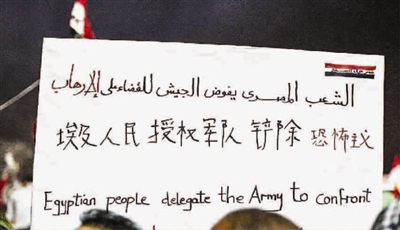 الشعب المصرى يفوض الجيش للقضاء على الإرهاب
埃及人民 授权军队 铲除 恐怖主
Egyptian people delegate the Army to confront